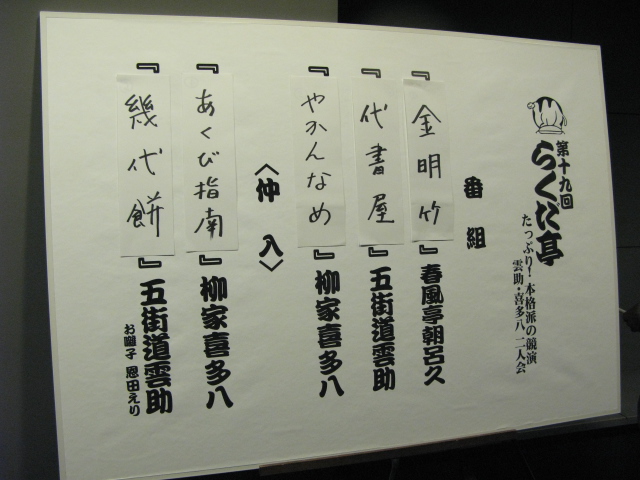 第十九回
らくだ亭
たっぷり！本格派の競演
雲助・喜多八 二人会
番組
『金明竹』春風亭朝呂久
『代書屋』五街道雲助
『やかんなめ』柳家喜多八
〈仲入〉
『あくび指南』柳家喜多八
『幾代餅』五街道雲助
お囃子 恩田えり